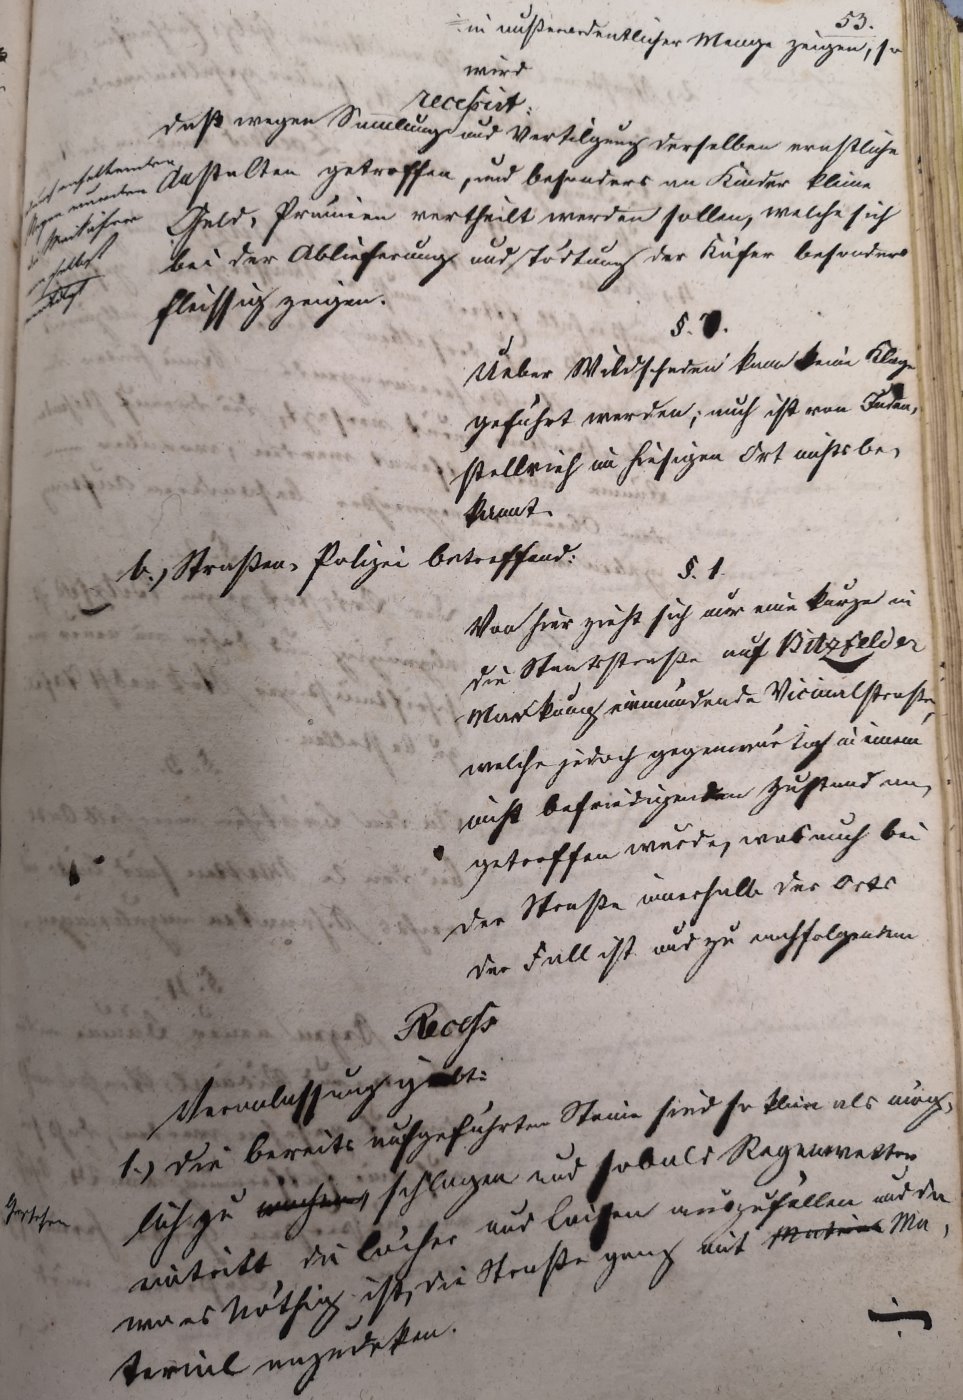 53.
in außerordentlicher Menge zeigen, so
wird
recessirt:
daß wegen Sammlung und Vertilgung derselben ernstliche
Anstalten getroffen, und besonders an Kinder kleine
Geld, Prämien vertheilt werden sollen, welche sich
bei der Ablieferung und Tödtung der Käfer besonders
fleissig zeigen.
§.
Ueber Wildschaden kann keine Klage
geführt werden; auch ist von Faden,
stellvieh im hiesigen Ort nichts be,
kannt.
b.) Straßen, Polizei betreffend:
§. 1.
Von hier zieht sich nur eine kurze in
die Staatsstraße auf Bitzfelder
Markung einmündende Vicinalstraße,
welche jedoch gegenwärtig in einem
nicht befriedigenden Zustand an,
getroffen wurde, was auch bei
der Straße innerhalb des Orts
der Fall ist und zu nachfolgendem
Recess
Veranlassung giebt:
1.) die bereits aufgeführten Steine sind so klein als mög,
lich zu machen, schlagen und sobald Regenwetter
eintritt die Löcher und Laisen auszufüllen und da
wo es nöthig ist, die Straße ganz mit Material Ma,
terial anzudeken.
Geschehen